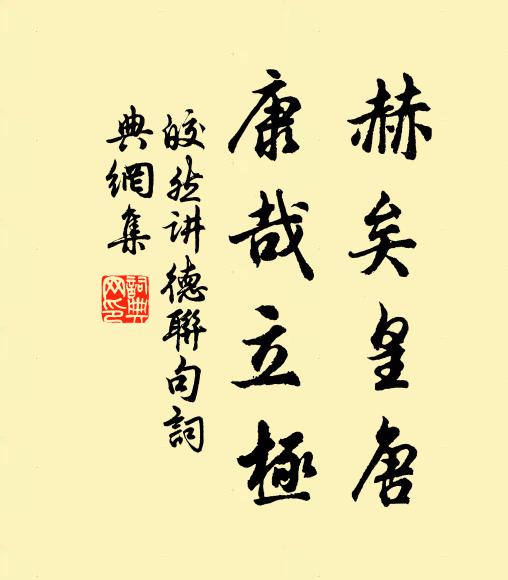 赫矣皇唐
康哉立極
皎然讲德聯句詞
典網集
詞典
网印